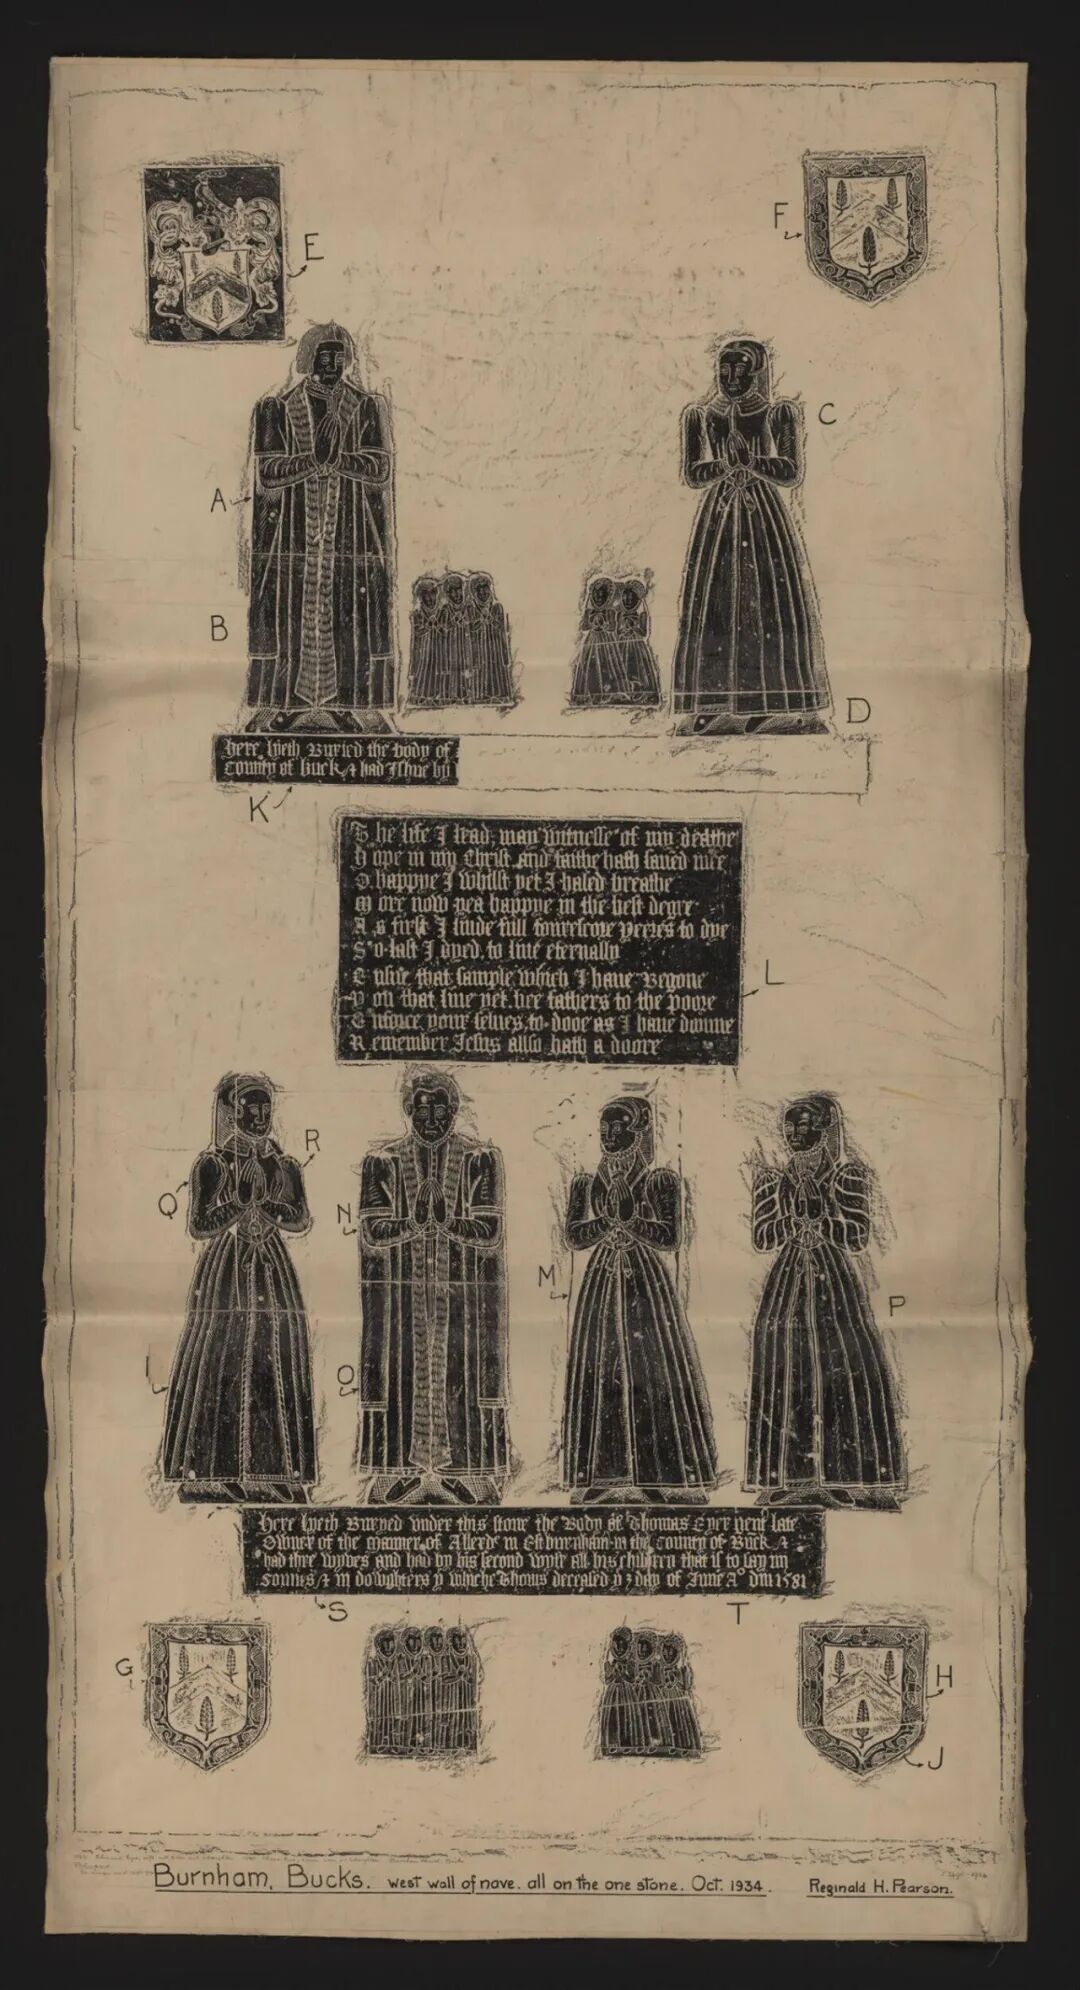 E
F
C
A
B
D
here lyeth Buried the body of
County of buck & had Issue by
K
The life I lead, may witnesse of my deathe
Hope in my Christ and faithe hath saued mee
O happye I whilst yet I haled breathe
More now yea happye in the best degre
As first I liude full fourescore yeeres to dye
So last I dyed to liue eternally
Ensue that sample which I haue begone
You that liue yet bee fathers to the poore
Enforce your selues to dooe as I haue donne
Remember Jesus allso hath a doore
L
R
Q
N
M
P
I
O
Here lyeth Buryed vnder this stone the Body of Thomas Eyer gent late
Owner of the manner of Allerds in Estburnham in the County of Buck &
had thre wyves and had by his second wyfe all his children that is to say iiii
sonnes & iii dowghters ye whiche Thomas decesed ye 3 day of June Ao dni 1581
S
T
G
H
J
Burnham, Bucks. west wall of nave. all on the one stone. Oct. 1934. Reginald H. Pearson.